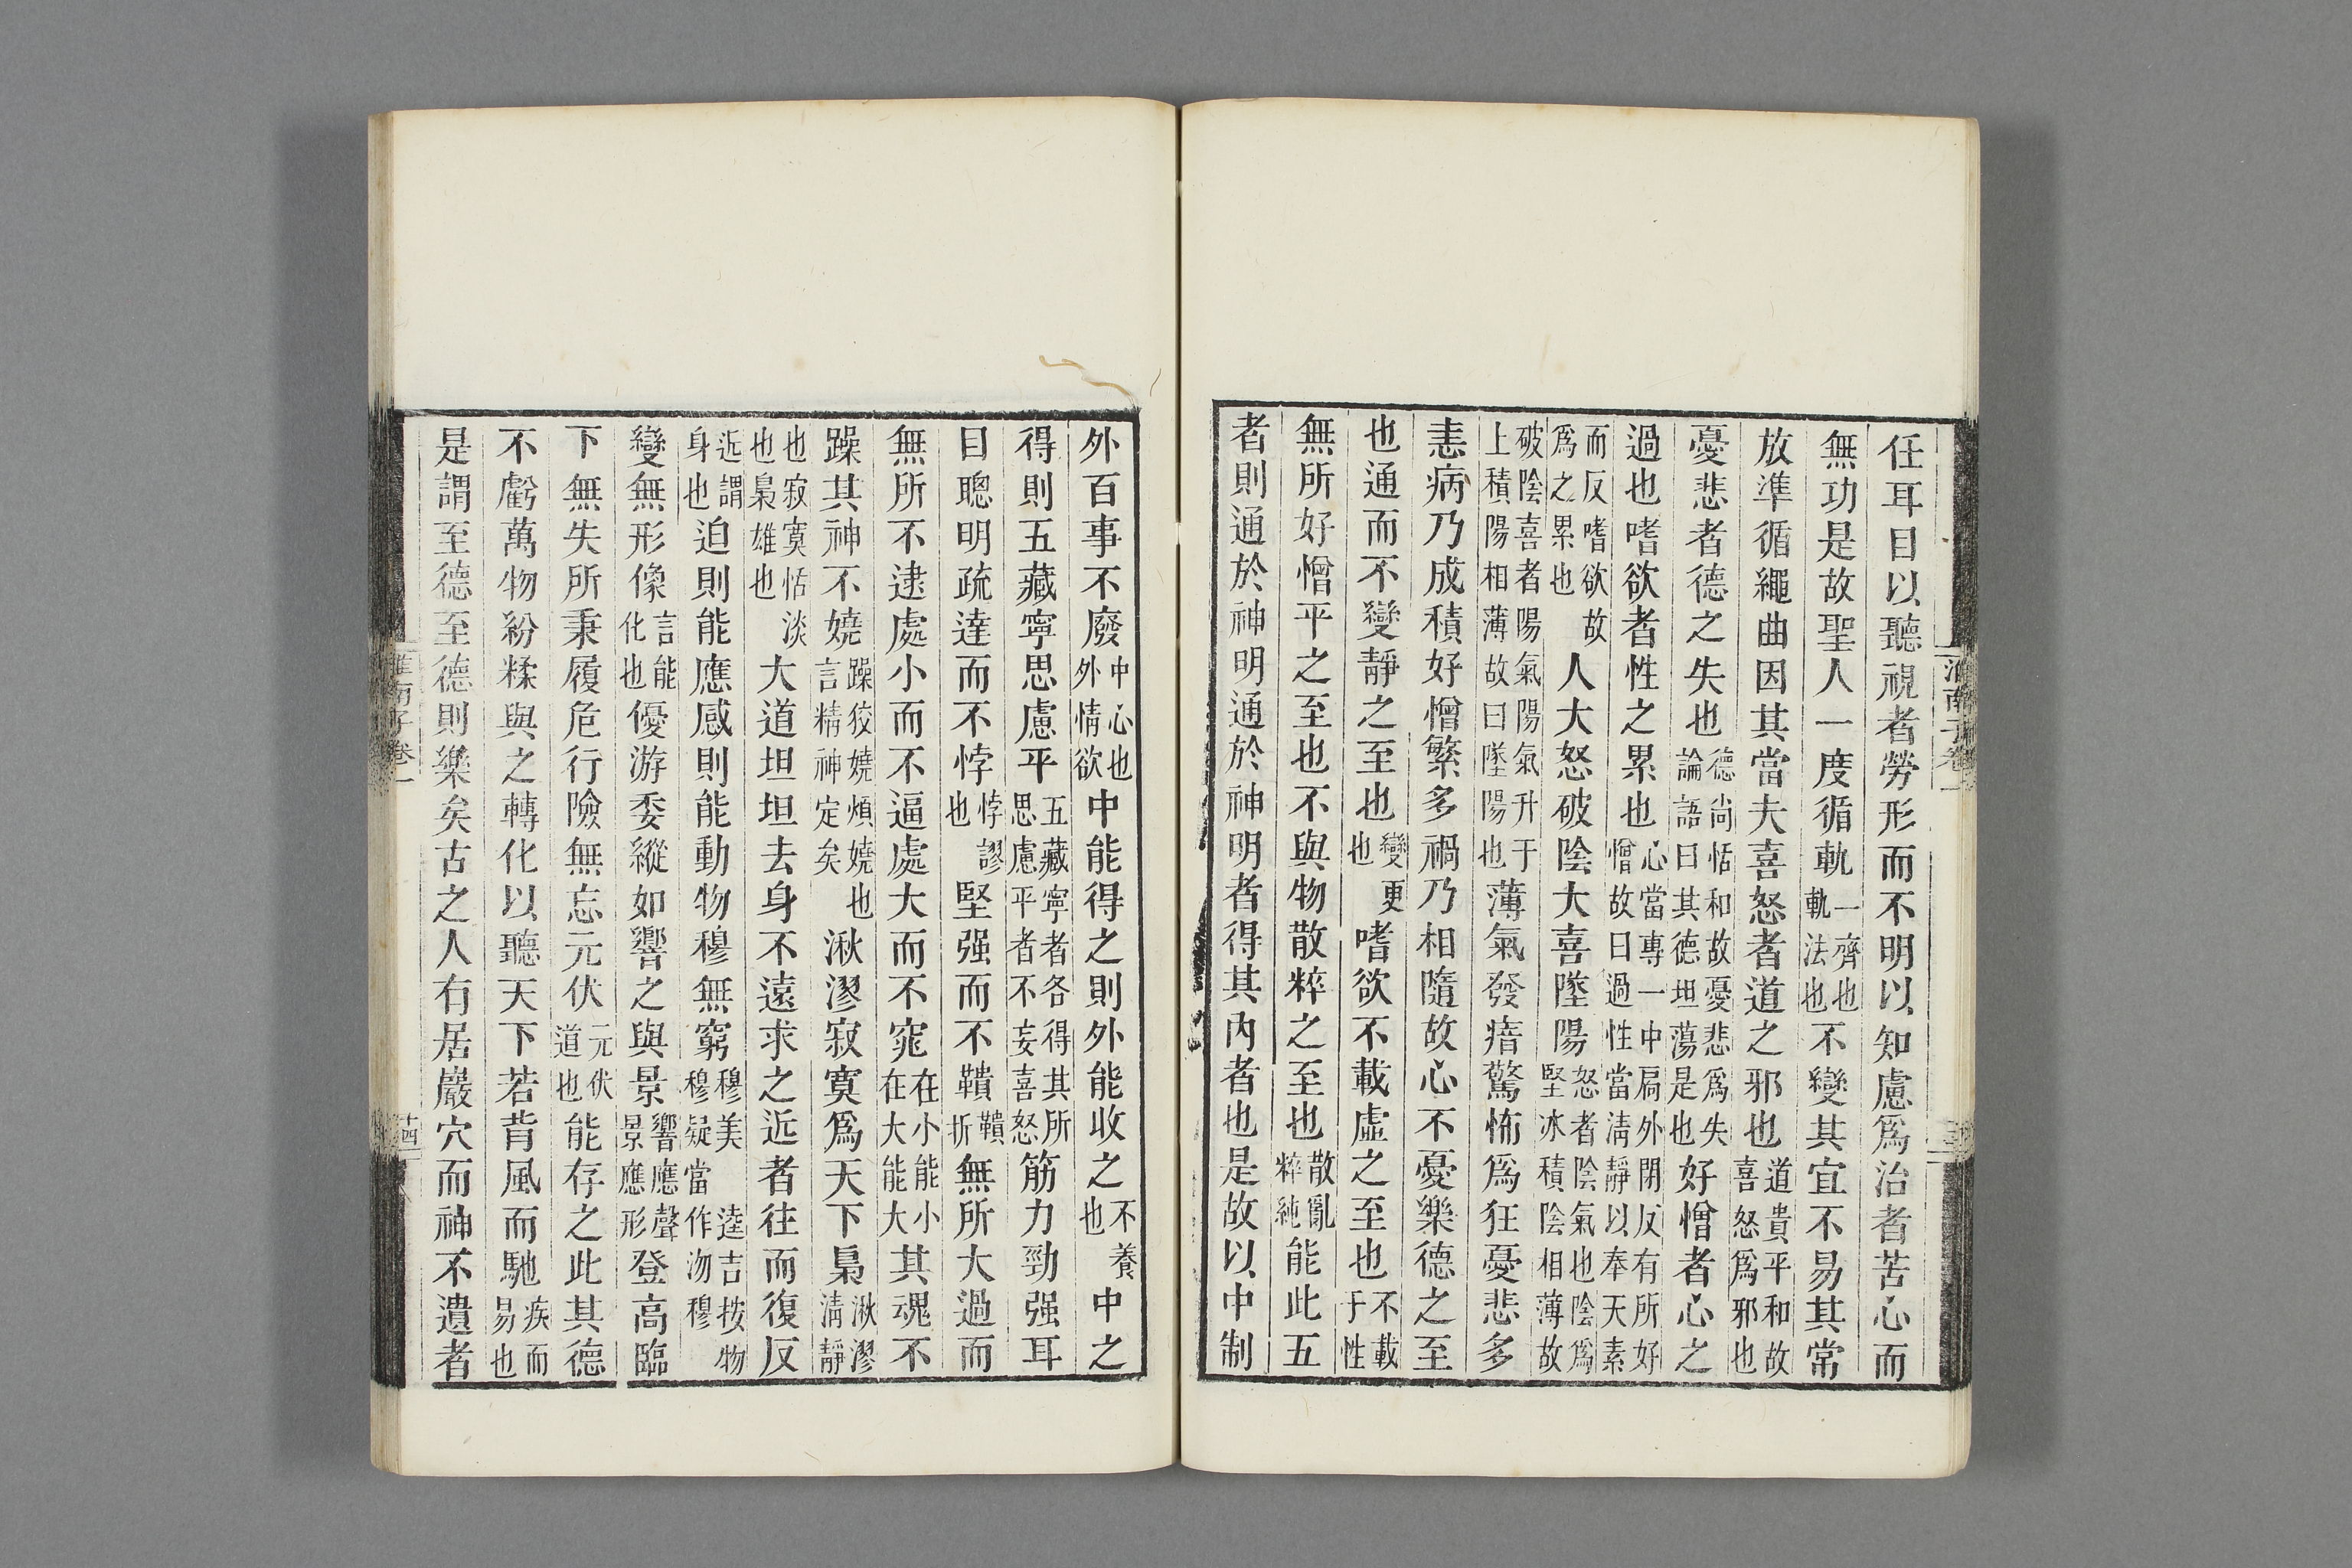 任耳目以聽視者勞形而不明以知慮爲治者苦心而
無功是故聖人一度循軌一齊也軌法也不變其宜不易其常
放準循繩曲因其當夫喜怒者道之邪也道貴平和故喜怒爲邪也
憂悲者德之失也德尚恬和故憂悲爲失論語曰其德坦蕩是也好憎者心之
過也嗜欲者性之累也心當專一中扃外閉反有所好憎故曰過性當淸靜以奉天素
而反嗜欲故爲之累也人大怒破陰大喜墜陽怒者陰氣也陰爲堅冰積陰相薄故
破陰喜者陽氣陽氣升于上積陽相薄故曰墜陽也薄氣發瘖驚怖爲狂憂悲多
恚病乃成積好憎繁多禍乃相隨故心不憂樂德之至
也通而不變靜之至也變更也嗜欲不載虛之至也不載于性
無所好憎平之至也不與物散粹之至也散亂粹純能此五
者則通於神明通於神明者得其內者也是故以中制
淮南子卷一
外百事不廢中心也外情欲中能得之則外能收之不養也中之
得則五藏寧思慮平五藏寧者各得其所思慮平者不妄喜怒筋力勁强耳
目聰明疏達而不悖悖謬也堅强而不鞼鞼折無所大過而
無所不逮處小而不逼處大而不窕在小能小在大能大其魂不
躁其神不嬈躁狡嬈煩嬈也言精神定矣湫漻寂寞爲天下梟湫漻淸靜
也寂寞恬淡也梟雄也大道坦坦去身不遠求之近者往而復反
近謂身也迫則能應感則能動物穆無窮穆美逵吉按物穆疑當作沕穆
變無形像言能化也優游委縱如響之與景響應聲景應形登高臨
下無失所秉履危行險無忘元伏元伏道也能存之此其德
不虧萬物紛糅與之轉化以聽天下若背風而馳疾而易也
是謂至德至德則樂矣古之人有居巖穴而神不遺者
淮南子卷一
十四